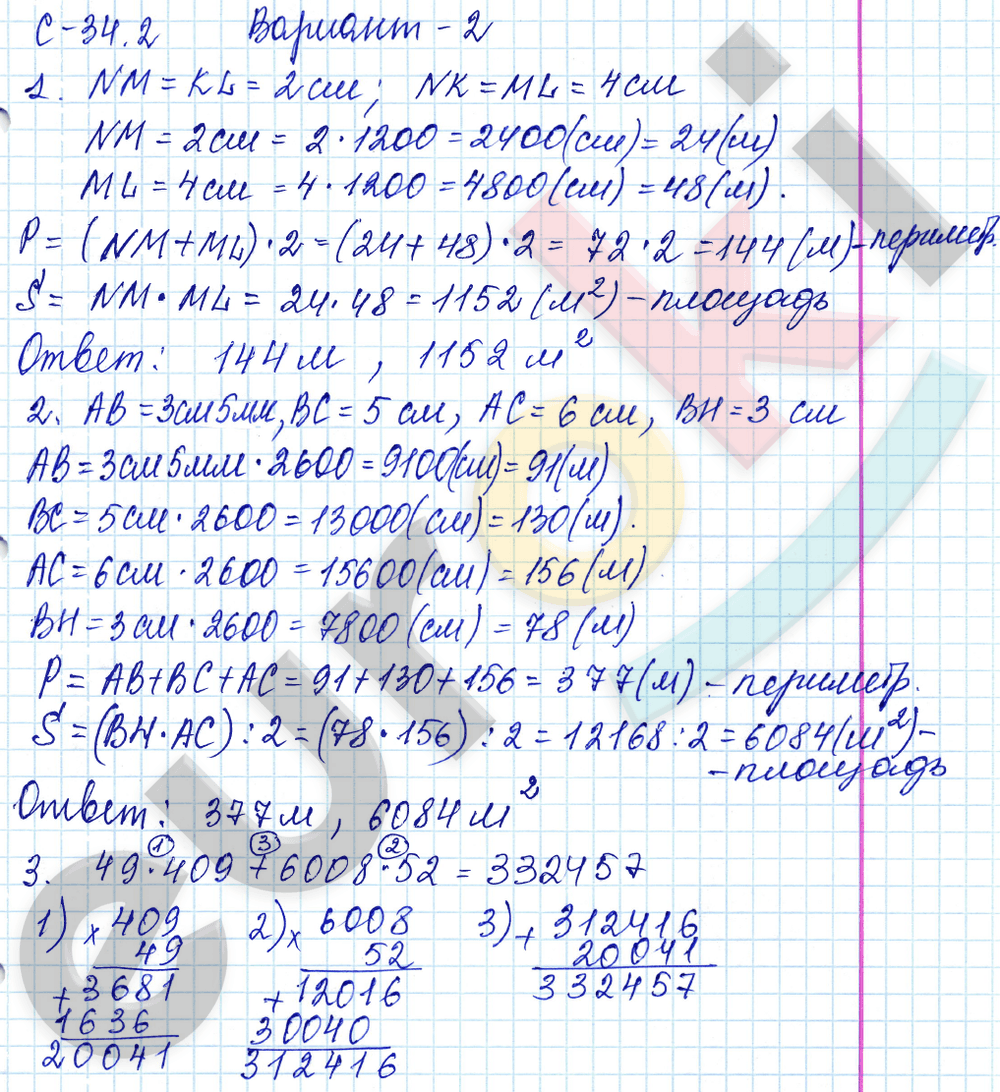 С-34.2 Вариант - 2
1. NM = KL = 2 см; NK = ML = 4 см
NM = 2 см = 2 · 1200 = 2400 (см) = 24 (м)
ML = 4 см = 4 · 1200 = 4800 (см) = 48 (м).
P = (NM + ML) · 2 = (24 + 48) · 2 = 72 · 2 = 144 (м) - периметр.
S = NM · ML = 24 · 48 = 1152 (м²) - площадь
Ответ: 144 м, 1152 м²
2. AB = 3см 5мм, BC = 5 см, AC = 6 см, BH = 3 см
AB = 3см 5мм · 2600 = 9100 (см) = 91 (м)
BC = 5 см · 2600 = 13000 (см) = 130 (м).
AC = 6 см · 2600 = 15600 (см) = 156 (м)
BH = 3 см · 2600 = 7800 (см) = 78 (м)
P = AB + BC + AC = 91 + 130 + 156 = 377 (м) - периметр.
S = (BH · AC) : 2 = (78 · 156) : 2 = 12168 : 2 = 6084 (м²) -
- площадь
Ответ: 377 м, 6084 м²
1 3 2
3. 49 · 409 + 6008 · 52 = 332457
1) × 409 2) × 6008 3) + 312416
49 52 20041
+ 3681 + 12016 332457
1636 30040
20041 312416
euroki